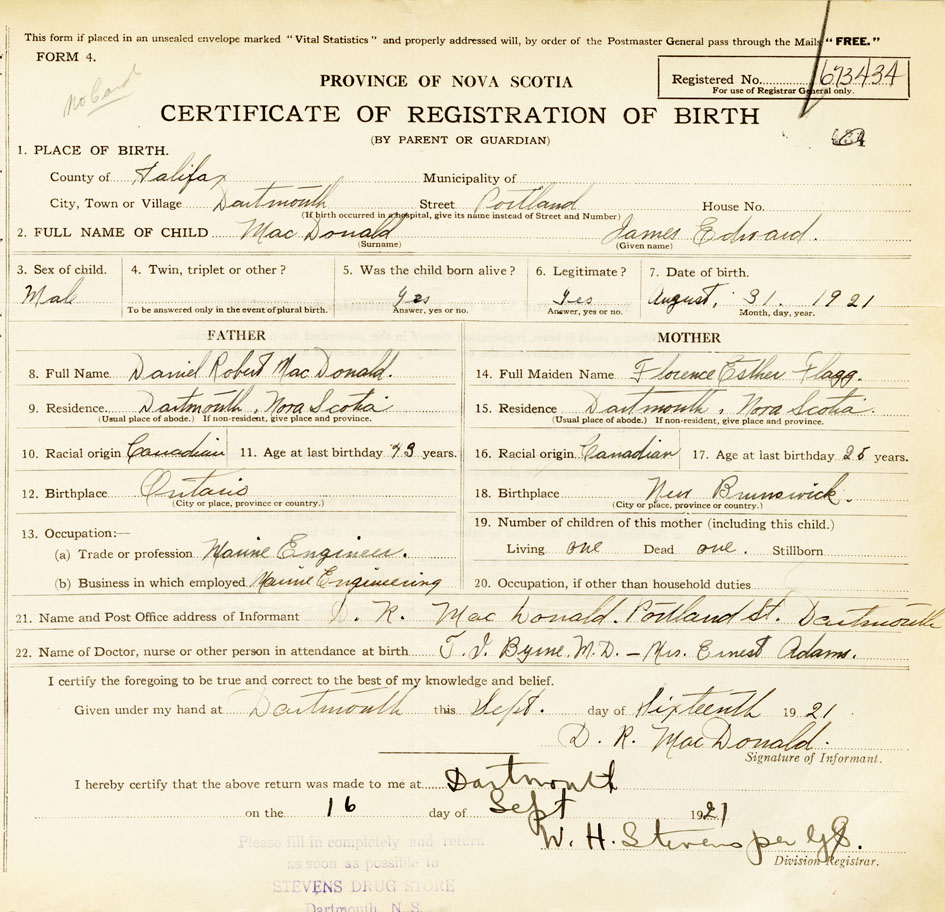 This form if placed in an unsealed envelope marked "Vital Statistics" and properly addressed will, by order of the Postmaster General pass through the Mails "FREE."
FORM 4.
No Card
PROVINCE OF NOVA SCOTIA
Registered No. 673434
For use of Registrar General only.
CERTIFICATE OF REGISTRATION OF BIRTH
(BY PARENT OR GUARDIAN)
1. PLACE OF BIRTH.
County of Halifax Municipality of
City, Town or Village Dartmouth Street Portland House No.
(If birth occurred in a hospital, give its name instead of Street and Number)
2. FULL NAME OF CHILD MacDonald James Edward.
(Surname) (Given name)
3. Sex of child. 4. Twin, triplet or other? 5. Was the child born alive? 6. Legitimate? 7. Date of birth.
Male Yes Yes August, 31. 1921
To be answered only in the event of plural birth. Answer, yes or no. Answer, yes or no. Month, day, year.
FATHER MOTHER
8. Full Name Daniel Robert MacDonald. 14. Full Maiden Name Florence Esther Flagg.
9. Residence. Dartmouth, Nova Scotia 15. Residence Dartmouth, Nova Scotia.
(Usual place of abode.) If non-resident, give place and province. (Usual place of abode.) If non-resident, give place and province.
10. Racial origin Canadian 11. Age at last birthday 43 years. 16. Racial origin Canadian 17. Age at last birthday 25 years.
12. Birthplace Ontario 18. Birthplace New Brunswick.
(City or place, province or country.) (City or place, province or country.)
13. Occupation:— 19. Number of children of this mother (including this child.)
(a) Trade or profession Marine Engineer. Living one Dead one. Stillborn
(b) Business in which employed Marine Engineering 20. Occupation, if other than household duties
21. Name and Post Office address of Informant D. R. MacDonald. Portland St. Dartmouth
22. Name of Doctor, nurse or other person in attendance at birth T. J. Byrne. M.D. – Mrs. Ernest Adams.
I certify the foregoing to be true and correct to the best of my knowledge and belief.
Given under my hand at Dartmouth this Sept. day of Sixteenth 1921
D. R. MacDonald.
Signature of Informant.
I hereby certify that the above return was made to me at Dartmouth
on the 16 day of Sept 1921
W. H. Stevens per
Division Registrar.
Please fill in completely and return
as soon as possible to
STEVENS DRUG STORE
Dartmouth, N. S.